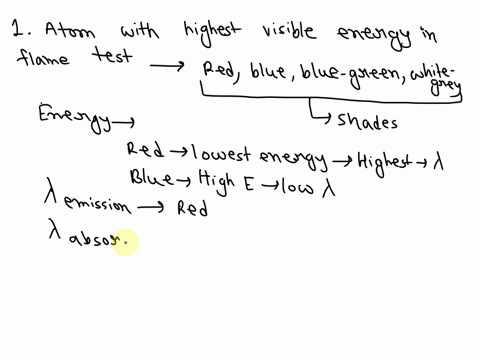 1. Atom with highest visible energy in
flame test → Red, blue, blue-green, white-grey
↳ Shades
Energy →
Red → lowest energy → Highest → λ
Blue → High E → low λ
λ emission → Red
λ absor.